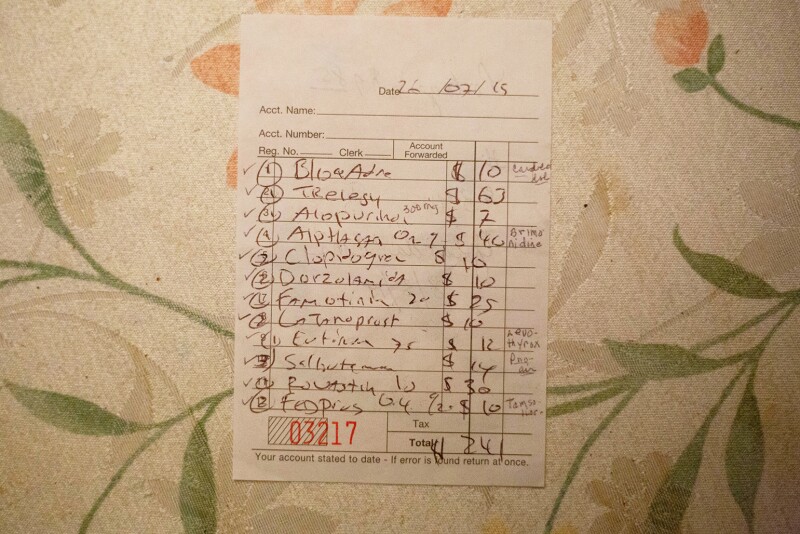 Date 26 /07/15
Acct. Name:
Acct. Number:
Reg. No. Clerk Account Forwarded
1 $ 10
2 Trelegy $ 63
3 Alopurinol 300mg $ 7
4 Alphagan 0.2 % $ 40 Brimo nidine
5 Clopidogrel $ 10
Dorzolamida $ 10
Famotinia 20 $ 25
8 Latanoprost $ 10
Eutirox 75 $ 12 Levo- thyrox
Salbutamon $ 14
10 $ 30
12 0.4 $ 10 Tamso-
03217
Tax
Total $ 241
Your account stated to date - If error is found return at once.